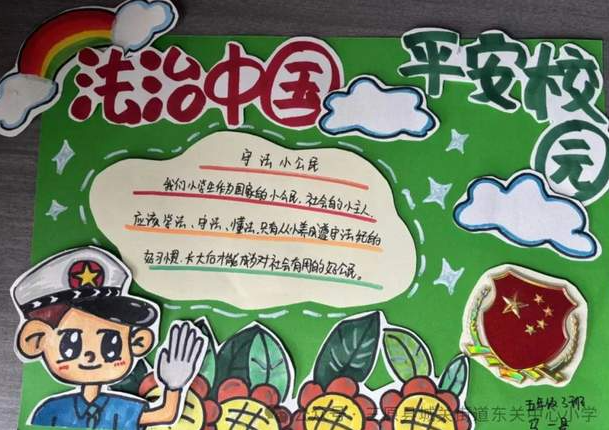 法治中国
平安校园
守法小公民
我们小学生作为国家的小公民、社会的小主人,
应该学法、守法、懂法,只有从小养成遵守法纪的
好习惯,长大后才能成为对社会有用的好公民。
五年级3班
公众号·三原县城关街道东关中心小学